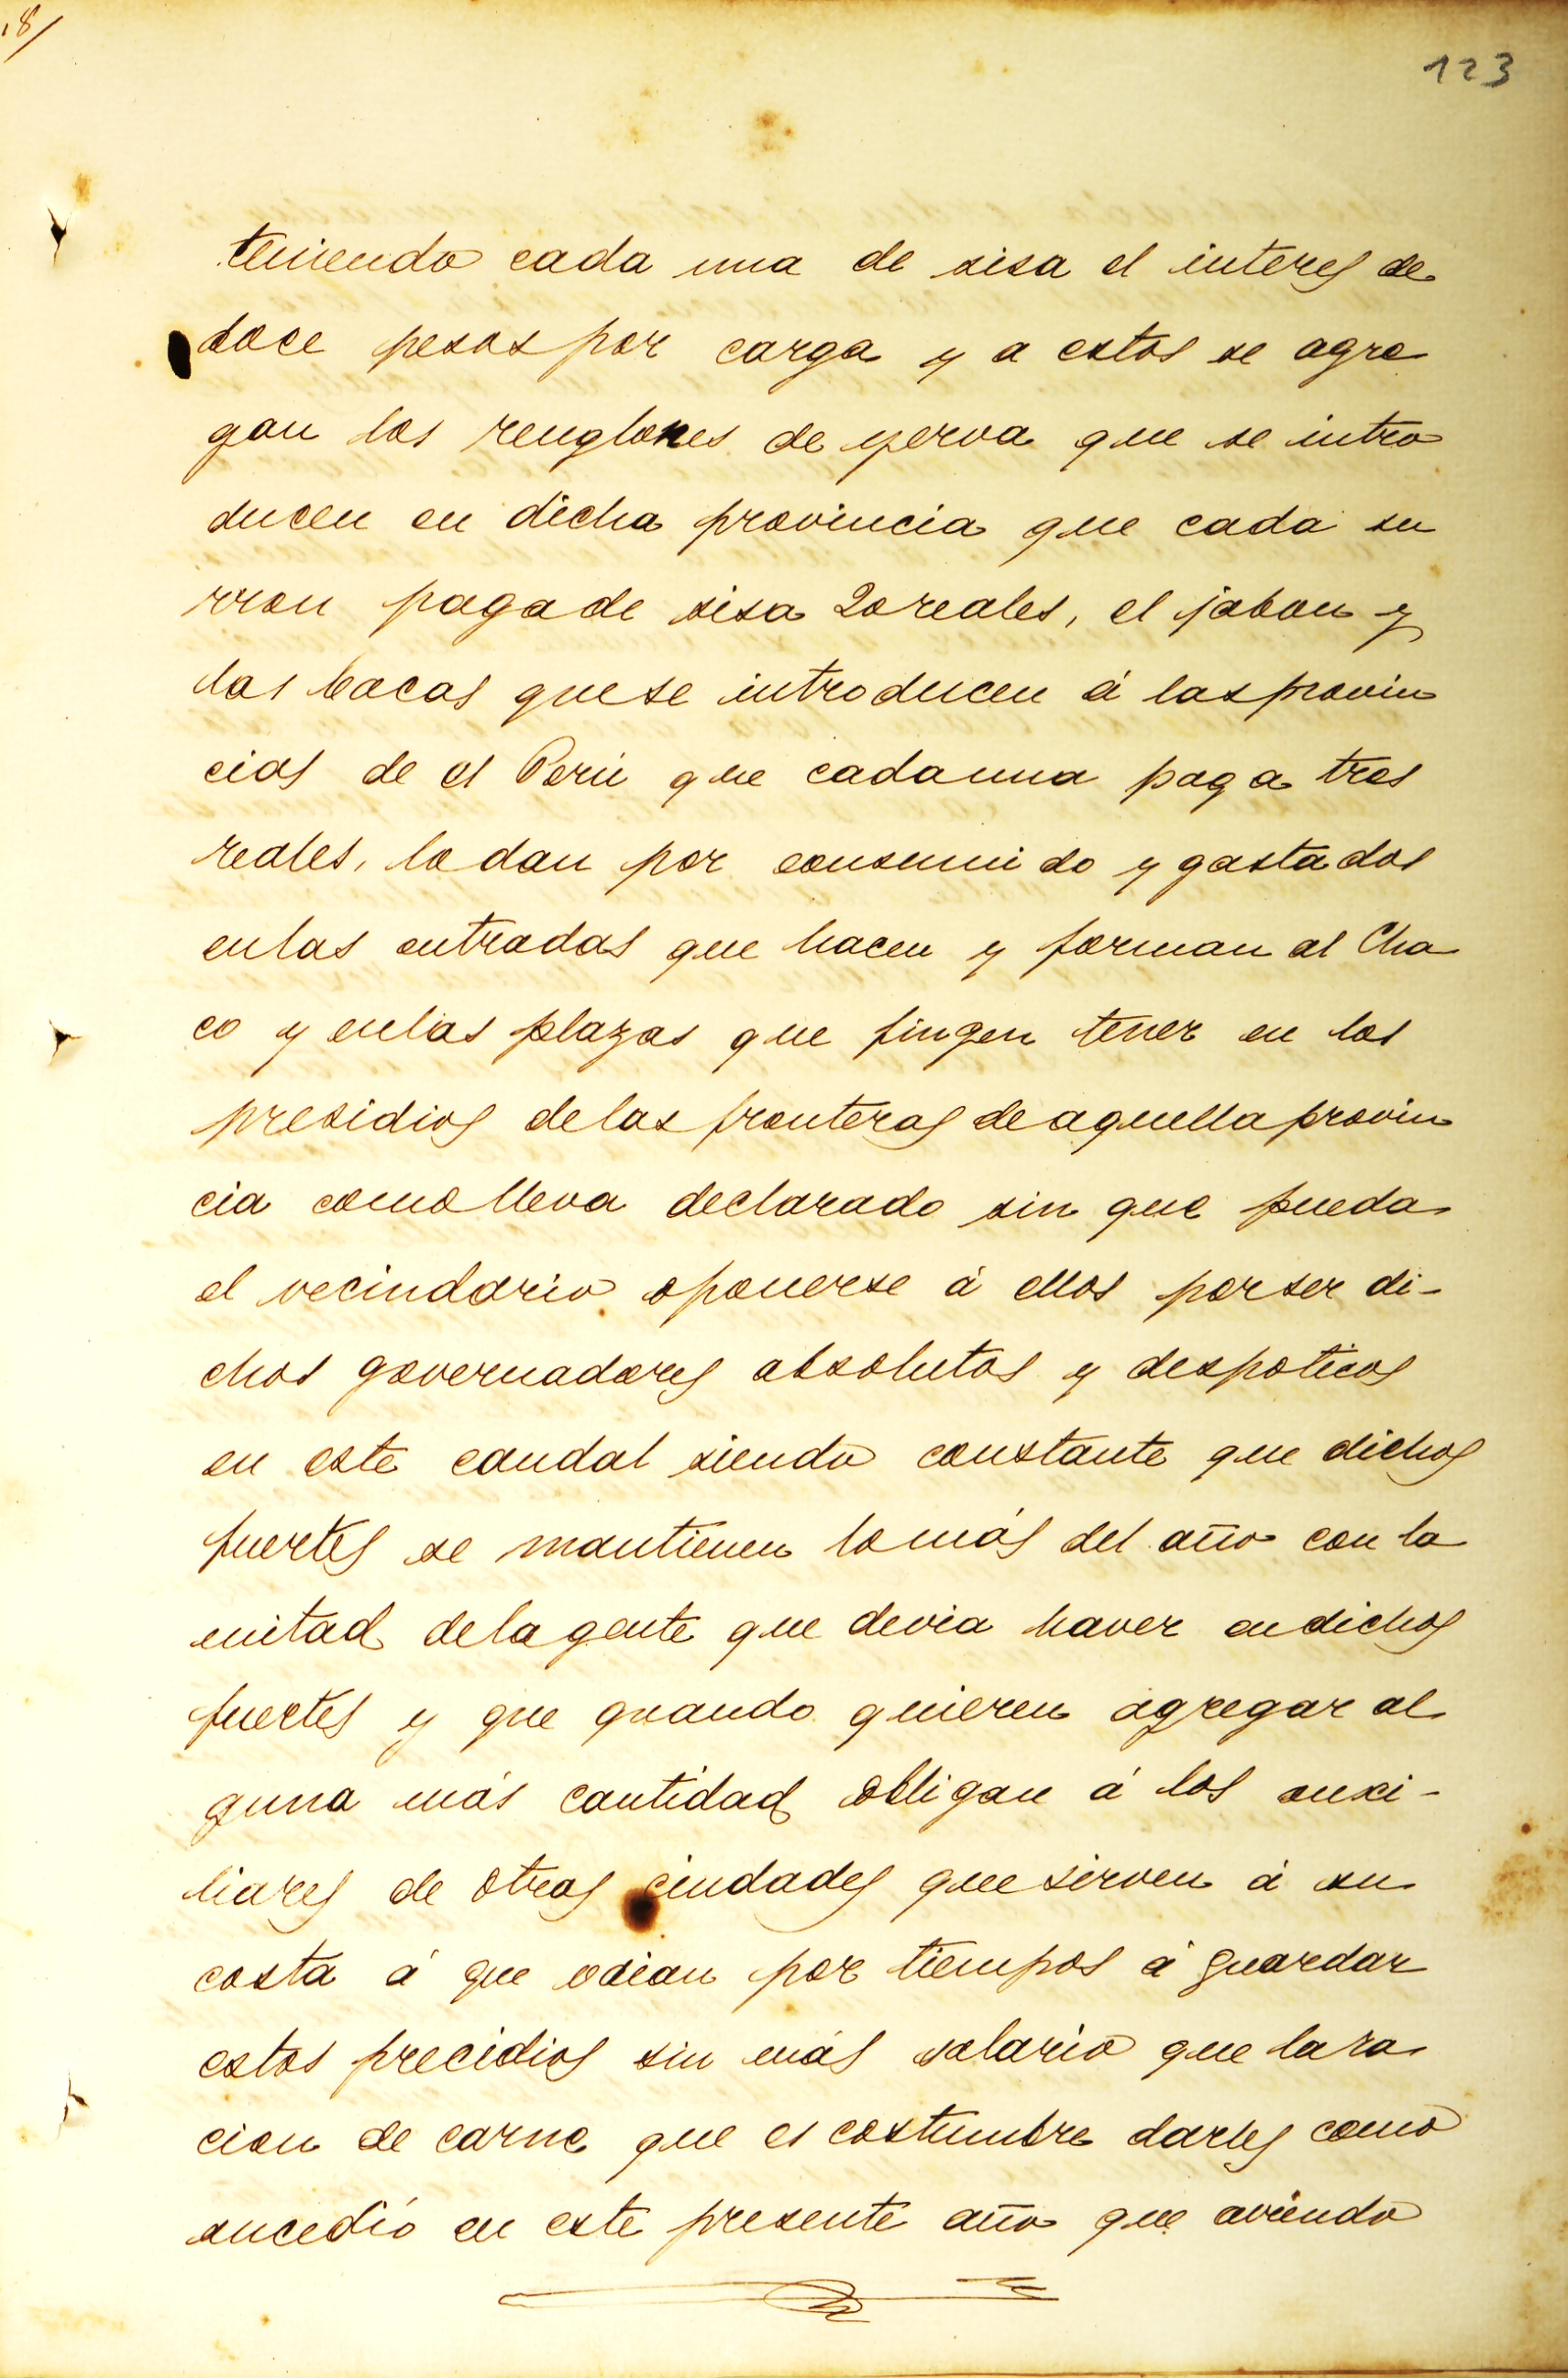 18/
123
teniendo cada una de sisa el interes de
doce pesos por carga y a estos se agre
gan los renglones de yerva que se intro
ducen en dicha provincia que cada su
rron paga de sisa 20 reales, el jabon y
las bacas que se introducen á las provin
cias de el Perú que cada una paga tres
reales, lo dan por consumido y gastados
en las entradas que hacen y forman al Cha
co y en las plazas que fingen tener en los
presidios de las fronteras de aquella provin
cia como lleva declarado sin que pueda
el vecindario oponerse á ellos por ser di-
chos governadores absolutos y despoticos
en este caudal siendo constante que dichos
fuertes se mantienen lo más del año con la
mitad de la gente que devia haver en dichos
fuertes y que quando quieren agregar al
guna más cantidad obligan á los auxi-
liares de otras ciudades que sirven á su
costa á que por tiempos á guardar
estos precidios sin más salario que la ra
cion de carne que es costumbre darles como
sucedió en este presente año que aviendo